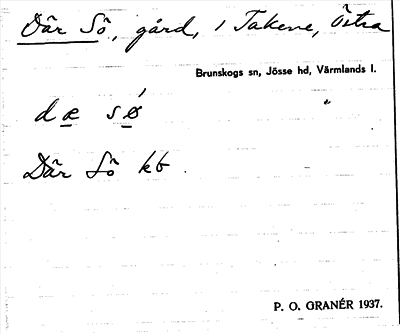 Där Sö, gård, i Takene, Östra
Brunskogs sn, Jösse hd, Värmlands l.
dæ sǿ
Där Sö kb.
P. O. GRANÉR 1937.